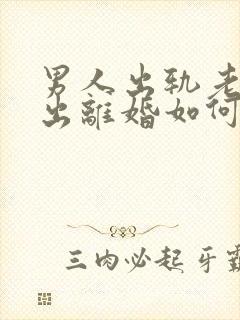 男人出轨老
出離婚如何
三肉必起牙霸